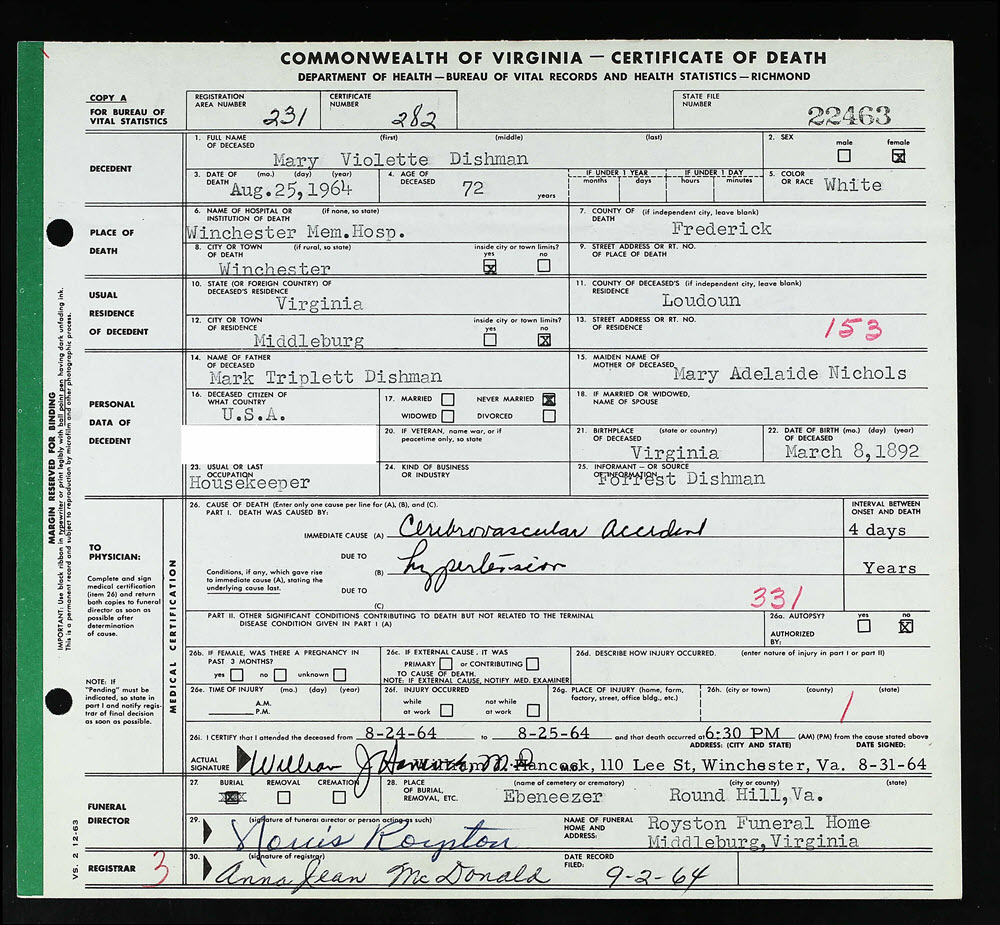 COMMONWEALTH OF VIRGINIA — CERTIFICATE OF DEATH
DEPARTMENT OF HEALTH—BUREAU OF VITAL RECORDS AND HEALTH STATISTICS—RICHMOND
COPY A
FOR BUREAU OF
VITAL STATISTICS
REGISTRATION AREA NUMBER 231
CERTIFICATE NUMBER 282
STATE FILE NUMBER 22463
DECEDENT
1. FULL NAME OF DECEASED (first) (middle) (last)
Mary Violette Dishman
2. SEX male female ☒
3. DATE OF DEATH (mo.) (day) (year)
Aug.25,1964
4. AGE OF DECEASED 72 years
IF UNDER 1 YEAR months days
IF UNDER 1 DAY hours minutes
5. COLOR OR RACE White
PLACE OF
DEATH
6. NAME OF HOSPITAL OR INSTITUTION OF DEATH (if none, so state)
Winchester Mem.Hosp.
7. COUNTY OF DEATH (if independent city, leave blank)
Frederick
8. CITY OR TOWN OF DEATH (if rural, so state)
Winchester
inside city or town limits? yes ☒ no ☐
9. STREET ADDRESS OR RT. NO. OF PLACE OF DEATH
USUAL
RESIDENCE
OF DECEDENT
10. STATE (OR FOREIGN COUNTRY) OF DECEASED'S RESIDENCE
Virginia
11. COUNTY OF DECEASED'S RESIDENCE (if independent city, leave blank)
Loudoun
12. CITY OR TOWN OF RESIDENCE
Middleburg
inside city or town limits? yes ☐ no ☒
13. STREET ADDRESS OR RT. NO. OF RESIDENCE
153
PERSONAL
DATA OF
DECEDENT
14. NAME OF FATHER OF DECEASED
Mark Triplett Dishman
15. MAIDEN NAME OF MOTHER OF DECEASED
Mary Adelaide Nichols
16. DECEASED CITIZEN OF WHAT COUNTRY
U.S.A.
17. MARRIED ☐ NEVER MARRIED ☒
WIDOWED ☐ DIVORCED ☐
18. IF MARRIED OR WIDOWED, NAME OF SPOUSE
20. IF VETERAN, name war, or if peacetime only, so state
21. BIRTHPLACE OF DECEASED (state or country)
Virginia
22. DATE OF BIRTH OF DECEASED (mo.) (day) (year)
March 8,1892
23. USUAL OR LAST OCCUPATION
Housekeeper
24. KIND OF BUSINESS OR INDUSTRY
25. INFORMANT – OR SOURCE OF INFORMATION
Forrest Dishman
TO
PHYSICIAN:
Complete and sign
medical certification
(item 26) and return
both copies to funeral
director as soon as
possible after
determination
of cause.
NOTE: If
"Pending" must be
indicated, so state in
part I and notify regis-
trar of final decision
as soon as possible.
MEDICAL CERTIFICATION
26. CAUSE OF DEATH (Enter only one cause per line for (A), (B), and (C).
PART I. DEATH WAS CAUSED BY:
INTERVAL BETWEEN ONSET AND DEATH
IMMEDIATE CAUSE (A) Cerebrovascular Accident 4 days
DUE TO
Conditions, if any, which gave rise to immediate cause (A), stating the underlying cause last.
(B) hypertension Years
DUE TO
(C)
331
PART II. OTHER SIGNIFICANT CONDITIONS CONTRIBUTING TO DEATH BUT NOT RELATED TO THE TERMINAL DISEASE CONDITION GIVEN IN PART I (A)
26a. AUTOPSY? yes ☐ no ☒
AUTHORIZED BY:
26b. IF FEMALE, WAS THERE A PREGNANCY IN PAST 3 MONTHS?
yes ☐ no ☐ unknown ☐
26c. IF EXTERNAL CAUSE, IT WAS
PRIMARY ☐ or CONTRIBUTING ☐
TO CAUSE OF DEATH.
NOTE: IF EXTERNAL CAUSE, NOTIFY MED. EXAMINER
26d. DESCRIBE HOW INJURY OCCURRED. (enter nature of injury in part I or part II)
26e. TIME OF INJURY (mo.) (day) (year)
A.M.
P.M.
26f. INJURY OCCURRED
while at work ☐ not while at work ☐
26g. PLACE OF INJURY (home, farm, factory, street, office bldg., etc.)
26h. (city or town) (county) (state)
26i. I CERTIFY that I attended the deceased from 8-24-64 to 8-25-64 and that death occurred at 6:30 PM (AM) (PM) from the cause stated above
ADDRESS: (CITY AND STATE) DATE SIGNED:
ACTUAL SIGNATURE William J Hancock, M.D. Hancock, 110 Lee St, Winchester, Va. 8-31-64
FUNERAL
DIRECTOR
27. BURIAL ☒ REMOVAL ☐ CREMATION ☐
28. PLACE OF BURIAL, REMOVAL, ETC. (name of cemetery or crematory) (city or county) (state)
Ebeneezer Round Hill,Va.
29. (signature of funeral director or person acting as such)
Norris Royston
NAME OF FUNERAL HOME AND ADDRESS:
Royston Funeral Home
Middleburg,Virginia
REGISTRAR 3
30. (signature of registrar)
Anna Jean McDonald
DATE RECORD FILED: 9-2-64
MARGIN RESERVED FOR BINDING
IMPORTANT: Use black ribbon in typewriter or print legibly with ball point pen having dark unfading ink.
This is a permanent record and subject to reproduction by microfilm and other photographic process.
VS. 2 12-63